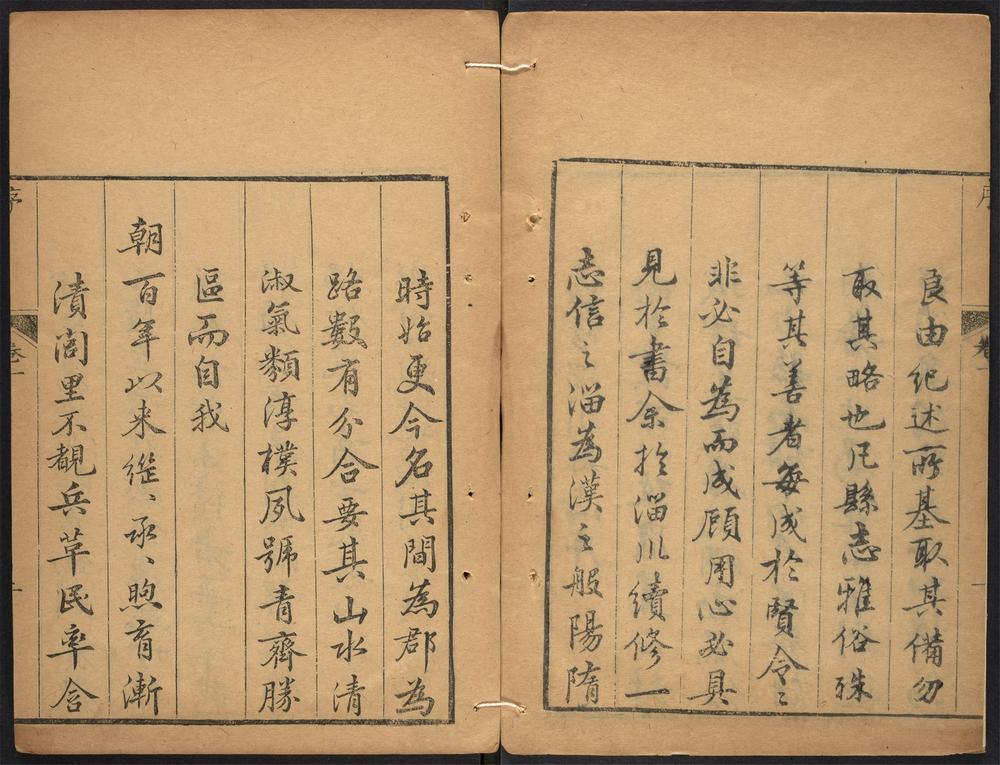 序
卷一
良由纪述所基取其備勿
取其略也凡縣志雅俗殊
等其善者每成於賢令〻
非必自為而成顧用心必具
見於書余於淄川續修一
志信之淄為漢之般陽隋
時始更今名其間為郡為
路數有分合要其山水清
淑氣類淳樸夙號青齊勝
區而自我
朝百年以来繩〻承〻煦育漸
漬閭里不覩兵革民率含
序
卷一
二